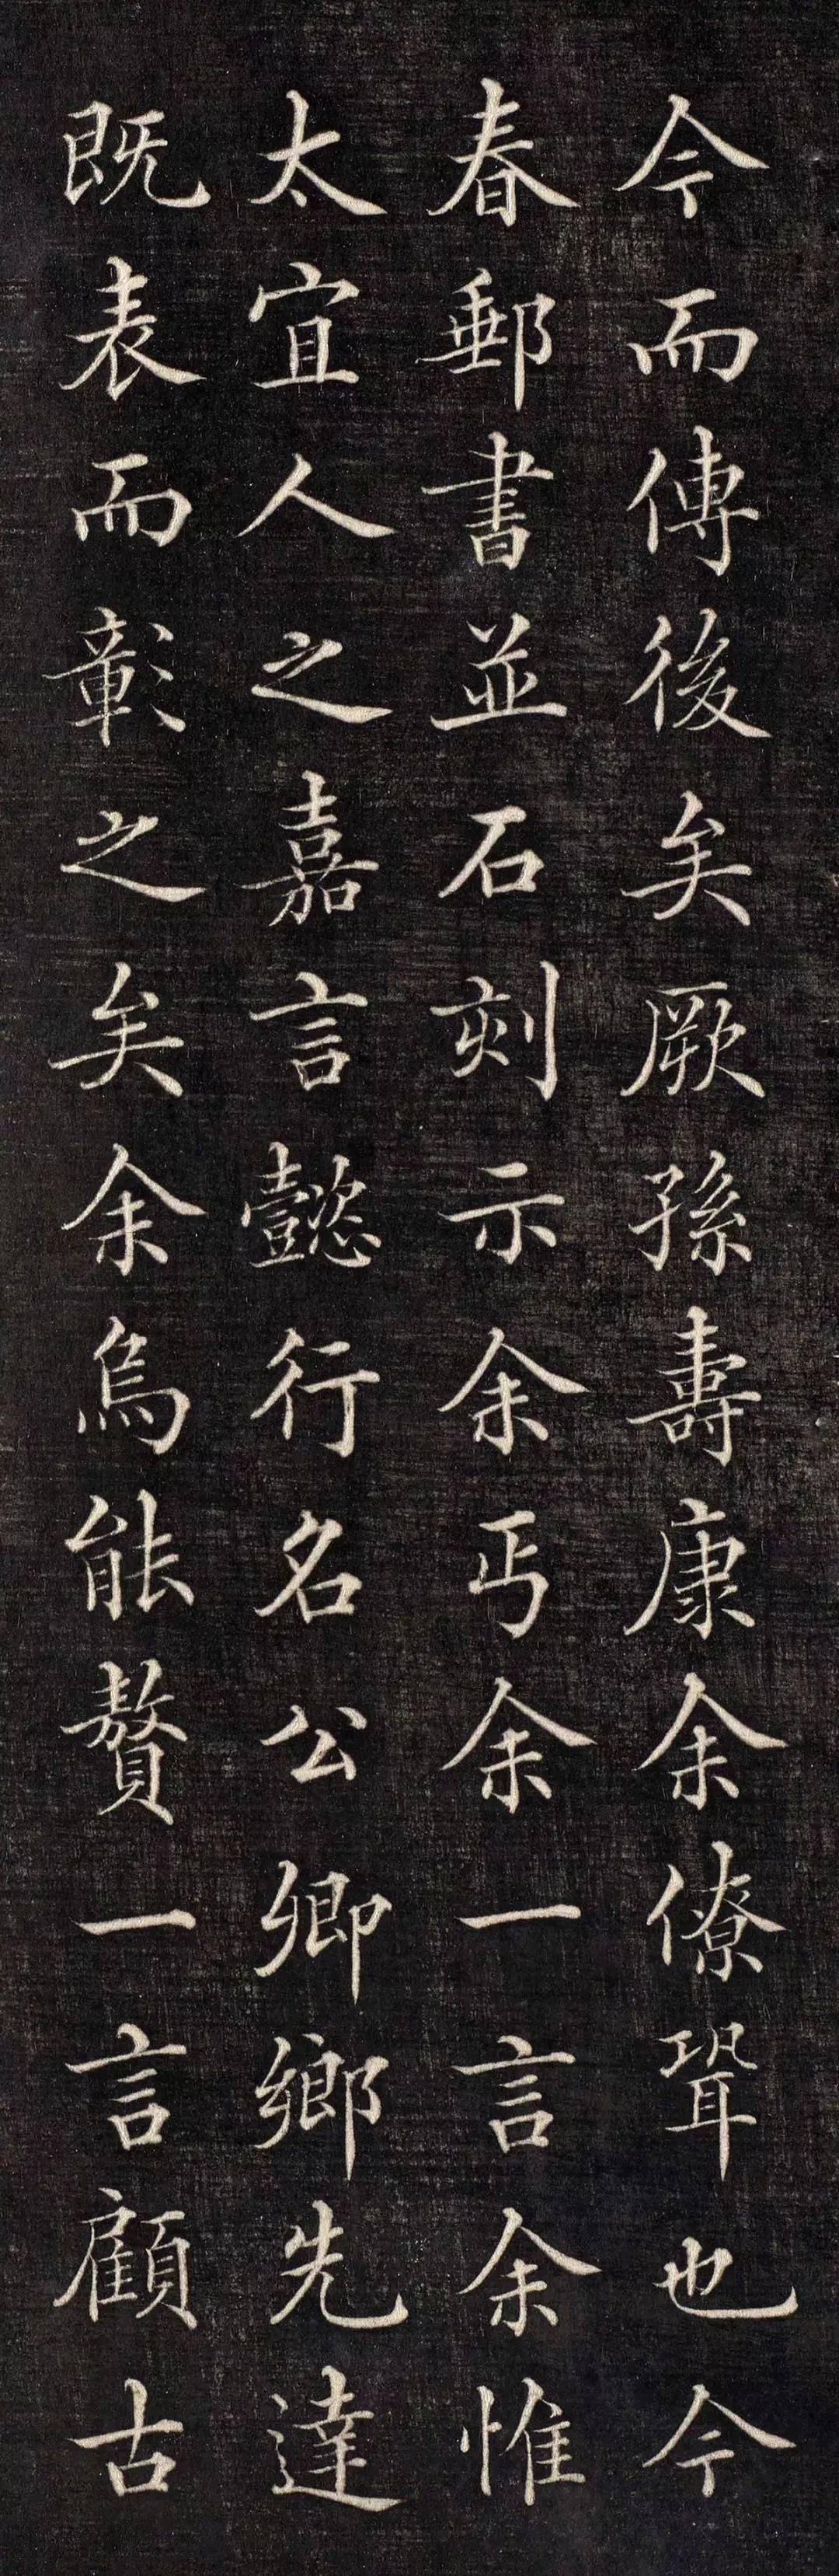 今而傳後矣厥孫壽康余僚壻也今
春郵書並石刻示余丐余一言余惟
太宜人之嘉言懿行名公卿鄉先達
既表而彰之矣余烏能贅一言顧古